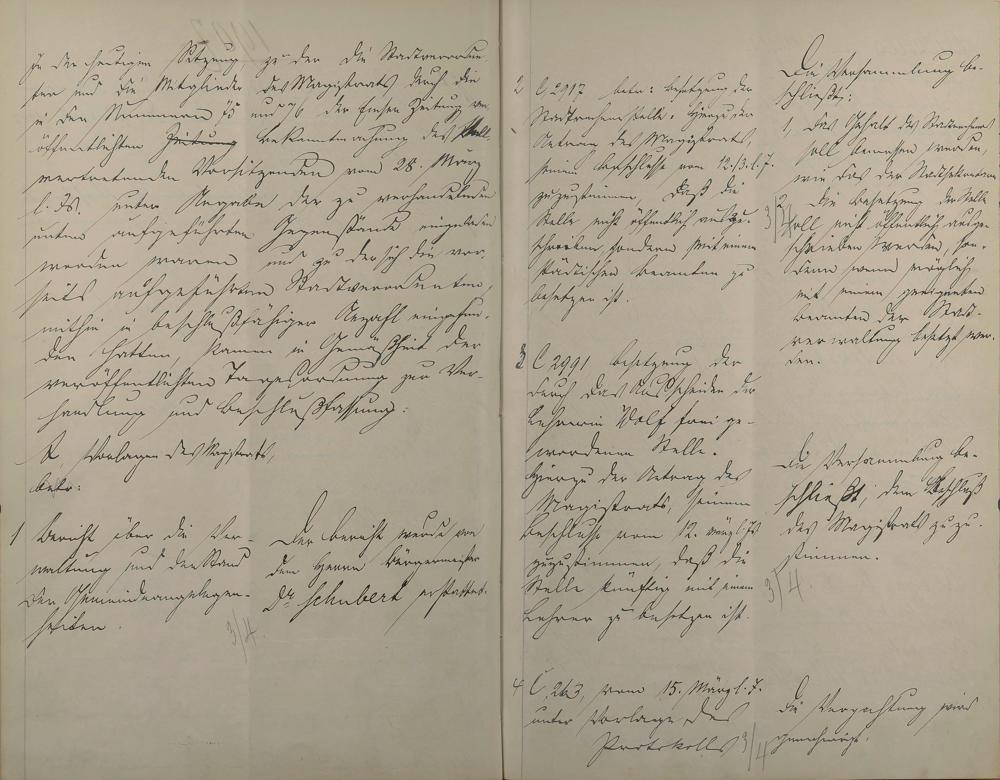 zu der heutigen Sitzung zu der die Stadtverordne-
ten und die Mitglieder des Magistrats durch die
in den Nummern 75 und 76 der Zeitung ver-
öffentlichten Zeitung Bekanntmachung des stell-
vertretenden Vorsitzenden vom 28. März
l. Js. unter Angabe der zu verhandelnden
unten aufgeführten Gegenstände eingeladen
worden waren und zu der sich die vor-
seits aufgeführten Stadtverordneten,
mithin in beschlußfähiger Anzahl eingefun-
den hatten, kamen in Gemäßheit der
veröffentlichten Tagesordnung zur Ver-
handlung und Beschlußfassung:
A, Vorlagen des Magistrats,
betr:
1 Bericht über die Ver-
waltung und den Stand
der Gemeindeangelegen-
heiten.
Der Bericht wurde von
dem Herrn Bürgermeister
Dr. Schubert erstattet.
3/4.
2 C 2917 betr: Besetzung der
Stadtrechnerstelle. Hierzu der
Antrag des Magistrats,
seinem Beschlusse vom 12./3. l. J.
zuzustimmen, daß die
Stelle nicht öffentlich auszu-
schreiben sondern mit einem
städtischen Beamten zu
besetzen ist.
Die Versammlung be-
schließt:
1, das Gehalt des Stadtrechners
soll bemessen werden,
wie das der Stadtsekretäre
2, Die Besetzung der Stelle
soll nicht öffentlich ausge-
schrieben werden, son-
dern wenn möglich
mit einem geeigneten
Beamten der Stadt-
verwaltung besetzt wer-
den.
3/4
3 C 2991 Besetzung der
durch das Ausscheiden der
Lehrerin Wolf frei ge-
wordenen Stelle.
Hierzu der Antrag des
Magistrats, seinem
Beschlusse vom 12. März l. Js
zuzustimmen, daß die
Stelle künftig mit einem
Lehrer zu besetzen ist.
Die Versammlung be-
schließt, dem Beschluß
des Magistrats zuzu-
stimmen.
3/4.
4 C. 263, vom 15. März l. J.
unter Vorlage des
Protokolls
Die Verpachtung wird
genehmigt.
3/4